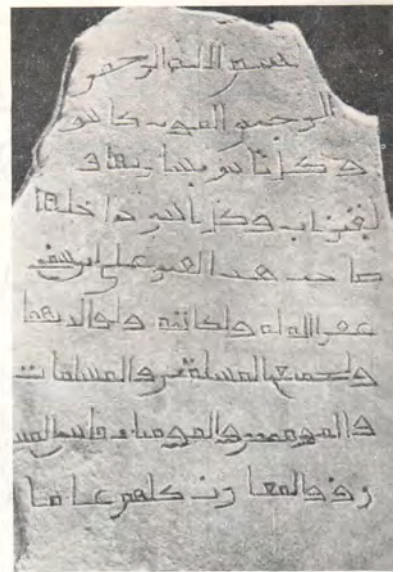 بسم الله الرحمن
الرحيم الموت كاس
وكل ناس يشاربها و
لقبر باب وكل الناس داخلها
صاحب هدا القبر على بن يوسف
غفر الله له ولكاتبه ولوالديهما
ولجميع المسلمين والمسلمات
والمومنين والمومنات
كلهم